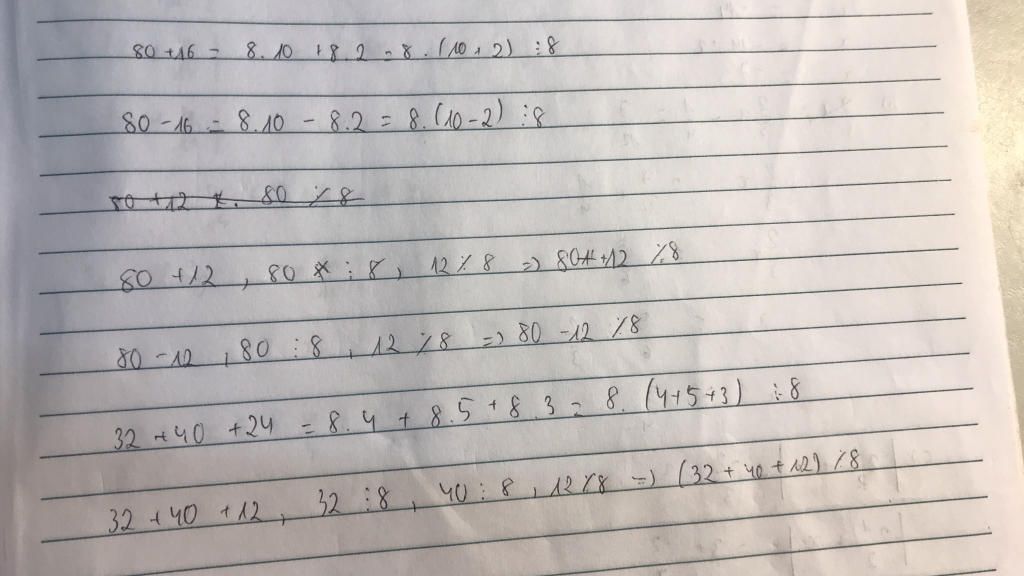 80 + 16 = 8.10 + 8.2 = 8.(10+2) ⋮ 8
80 - 16 = 8.10 - 8.2 = 8.(10-2) ⋮ 8
80 + 12 . 80 ⋮̸ 8
80 + 12 , 80 ⋮ 8 , 12 ⋮̸ 8 => 80 + 12 ⋮̸ 8
80 - 12 , 80 ⋮ 8 , 12 ⋮̸ 8 => 80 - 12 ⋮̸ 8
32 + 40 + 24 = 8.4 + 8.5 + 8.3 = 8.(4+5+3) ⋮ 8
32 + 40 + 12 , 32 ⋮ 8 , 40 ⋮ 8 , 12 ⋮̸ 8 => (32 + 40 + 12) ⋮̸ 8